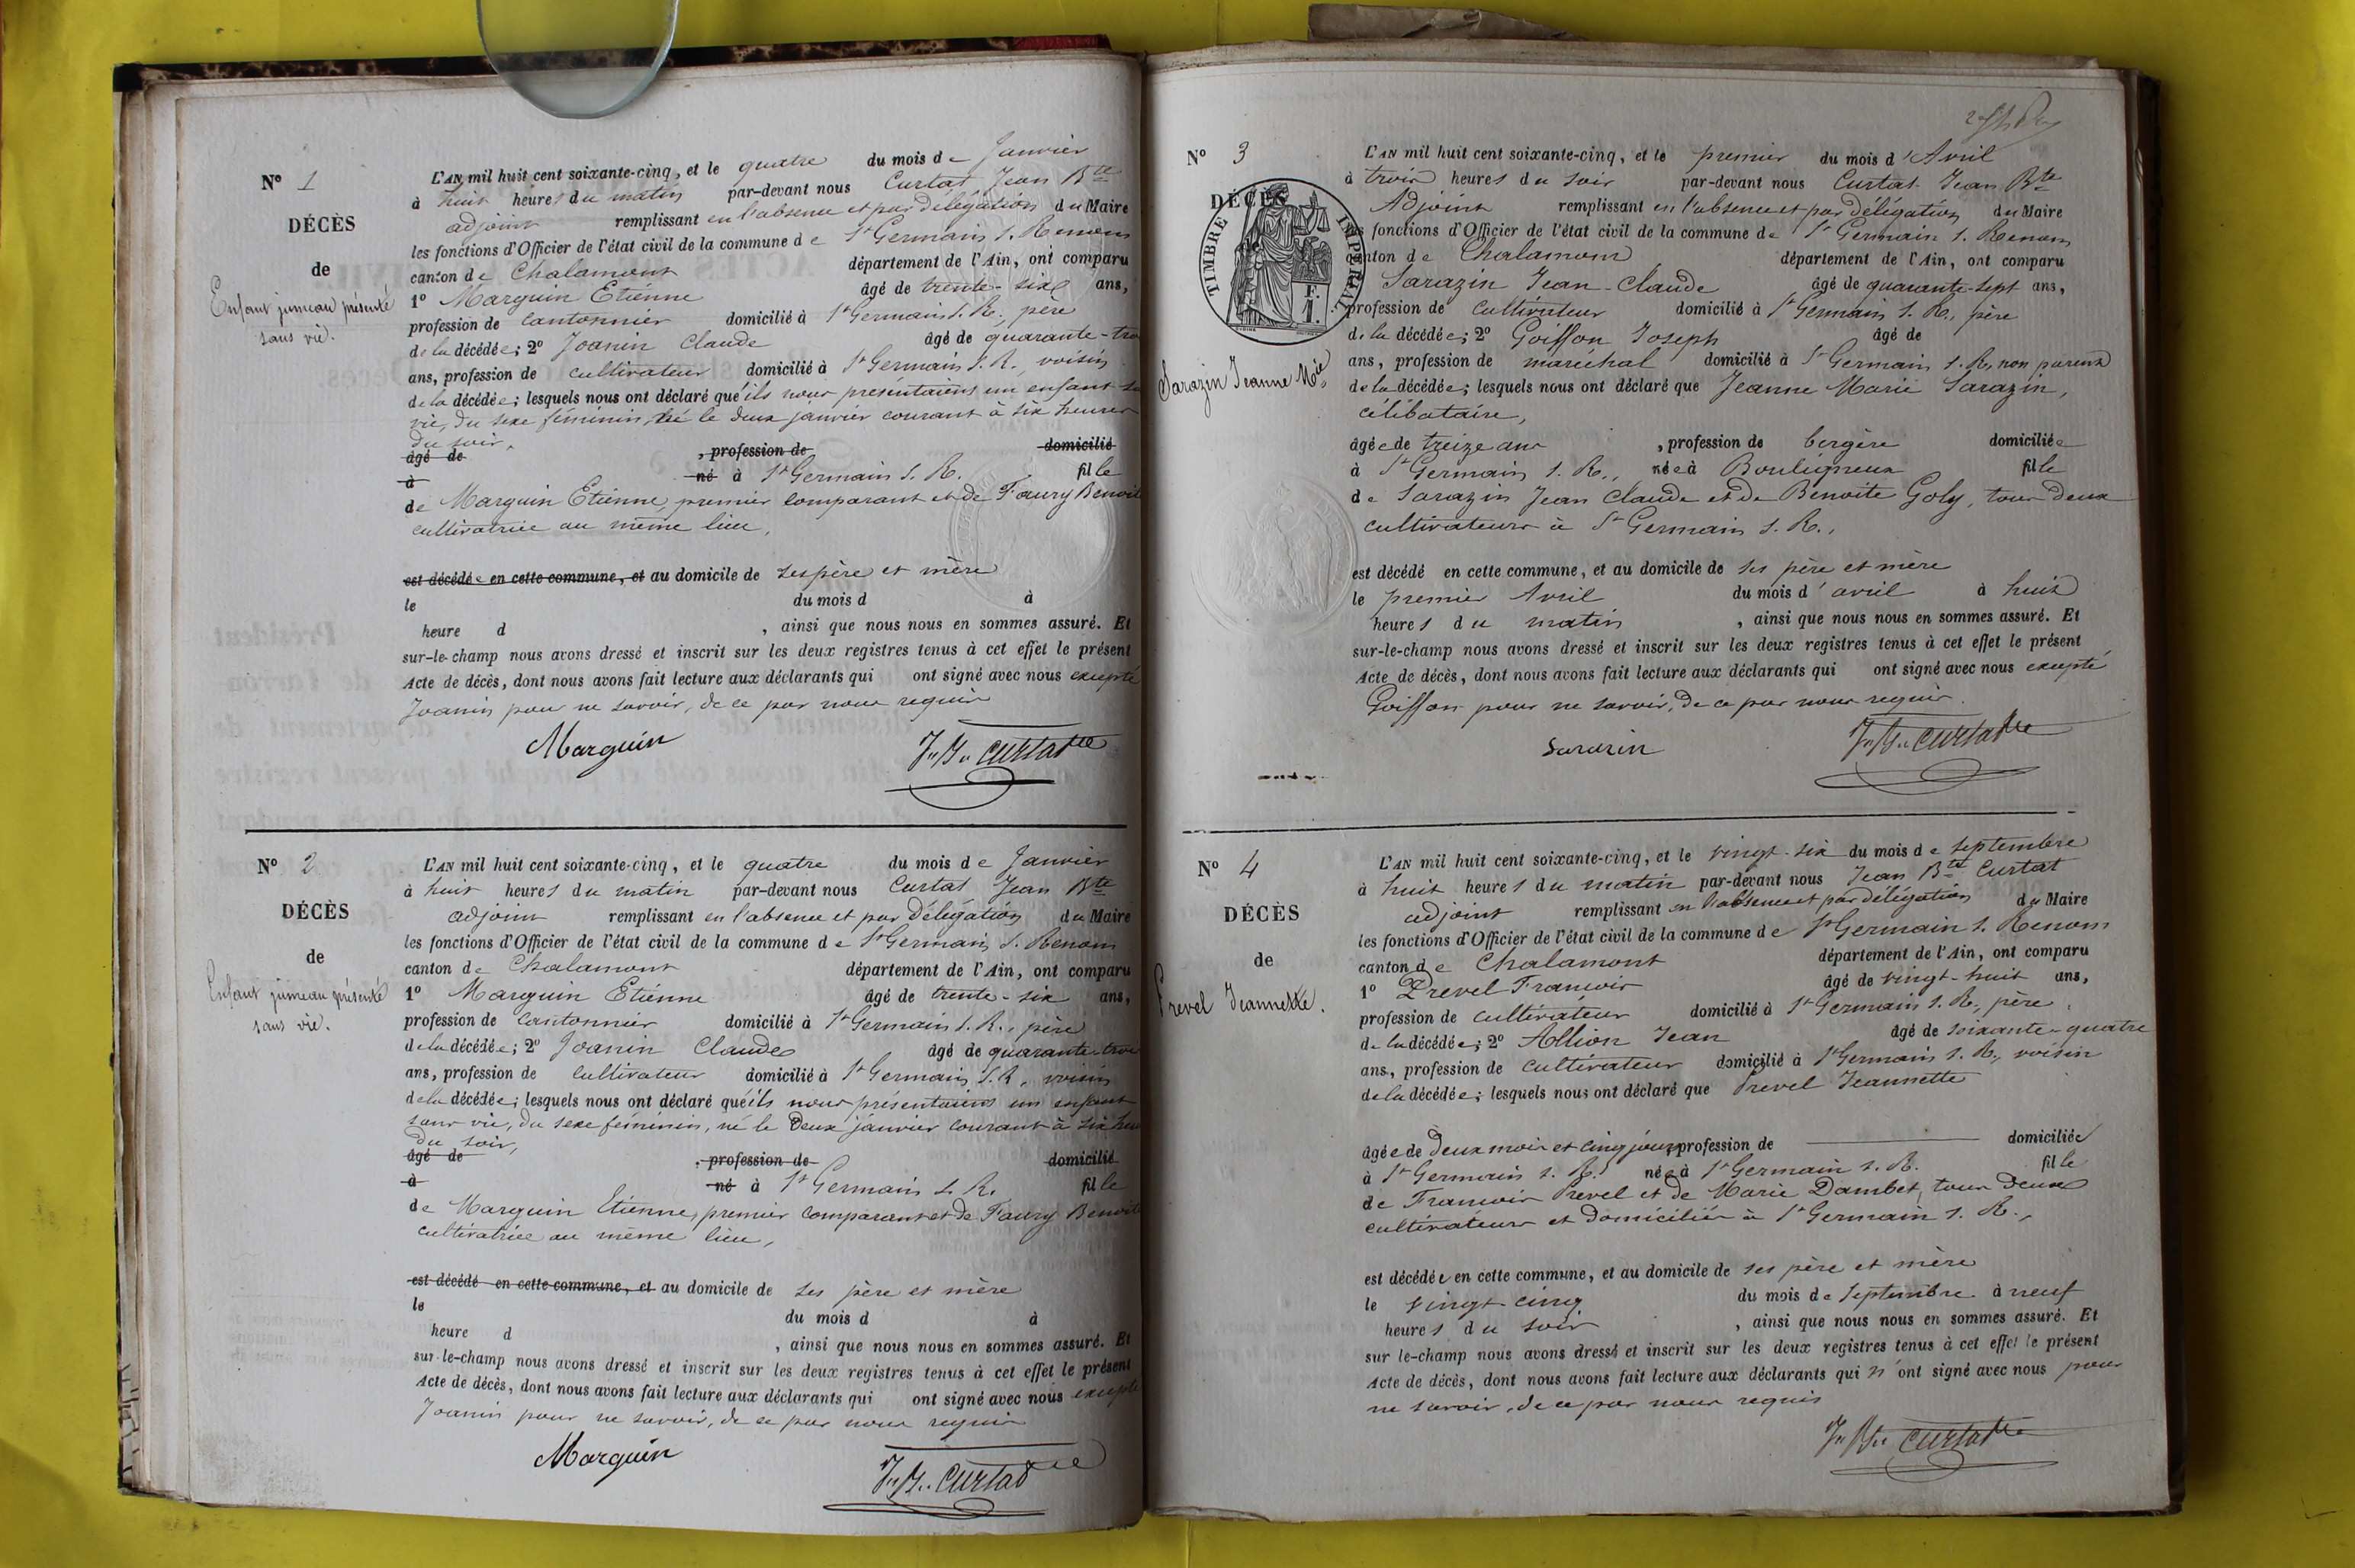 N° 1
DÉCÈS
de
Enfant jumeau présenté
sans vie.
L'AN mil huit cent soixante-cinq, et le quatre du mois de Janvier
à huit heures du matin par-devant nous Curtat Jean Bte
adjoint remplissant en l'absence et par délégation du Maire
les fonctions d'Officier de l'état civil de la commune de St Germain s. Renom
canton de Chalamont département de l'Ain, ont comparu
1° Marguin Etienne âgé de trente-six ans,
profession de cantonnier domicilié à St Germain s. R., père
de la décédée; 2° Joanin Claude âgé de quarante-trois
ans, profession de cultivateur domicilié à St Germain s. R., voisin
de la décédée; lesquels nous ont déclaré qu'ils nous présentaient un enfant sans
vie, du sexe féminin, né le deux janvier courant à six heures
du soir,
âgé de , profession de domicilié
à né à St Germain s. R. fille
de Marguin Etienne, premier comparant et de Faury Benoite
cultivatrice au même lieu,
est décédée en cette commune, et au domicile de ses père et mère
le du mois d à
heure d , ainsi que nous nous en sommes assuré. Et
sur-le-champ nous avons dressé et inscrit sur les deux registres tenus à cet effet le présent
Acte de décès, dont nous avons fait lecture aux déclarants qui ont signé avec nous excepté
Joanin pour ne savoir, de ce par nous requis
Marguin Jn Bte Curtat
N° 2
DÉCÈS
de
Enfant jumeau présenté
sans vie.
L'AN mil huit cent soixante-cinq, et le quatre du mois de Janvier
à huit heures du matin par-devant nous Curtat Jean Bte
adjoint remplissant en l'absence et par délégation du Maire
les fonctions d'Officier de l'état civil de la commune de St Germain s. Renom
canton de Chalamont département de l'Ain, ont comparu
1° Marguin Etienne âgé de trente-six ans,
profession de cantonnier domicilié à St Germain s. R., père
de la décédée; 2° Joanin Claude âgé de quarante trois
ans, profession de cultivateur domicilié à St Germain s. R., voisin
de la décédée; lesquels nous ont déclaré qu'ils nous présentaient un enfant
sans vie, du sexe féminin, né le deux janvier courant à six heures
du soir,
âgé de , profession de domicilié
à né à St Germain s. R. fille
de Marguin Etienne, premier comparant et de Faury Benoite
cultivatrice au même lieu,
est décédé en cette commune, et au domicile de ses père et mère
le du mois d à
heure d , ainsi que nous nous en sommes assuré. Et
sur-le-champ nous avons dressé et inscrit sur les deux registres tenus à cet effet le présent
Acte de décès, dont nous avons fait lecture aux déclarants qui ont signé avec nous excepté
Joanin pour ne savoir, de ce par nous requis
Marguin Jn Bte Curtat
N° 3
DÉCÈS
de
TIMBRE IMPÉRIAL
F.
1.
Sarazin Jeanne Mie
L'AN mil huit cent soixante-cinq, et le premier du mois d'Avril
à trois heures du soir par-devant nous Curtat Jean Bte
Adjoint remplissant en l'absence et par délégation du Maire
les fonctions d'Officier de l'état civil de la commune de St Germain s. Renom
canton de Chalamont département de l'Ain, ont comparu
Sarazin Jean-Claude âgé de quarante-sept ans,
profession de cultivateur domicilié à St Germain s. R., père
de la décédée; 2° Goiffon Joseph âgé de
ans, profession de maréchal domicilié à St Germain s. R., non parent
de la décédée; lesquels nous ont déclaré que Jeanne Marie Sarazin,
célibataire,
âgée de treize ans , profession de bergère domiciliée
à St Germain s. R., née à Bouligneux fille
de Sarazin Jean Claude et de Benoite Goly, tous deux
cultivateurs à St Germain s. R.,
est décédé en cette commune, et au domicile de ses père et mère
le premier Avril du mois d'avril à huit
heures du matin , ainsi que nous nous en sommes assuré. Et
sur-le-champ nous avons dressé et inscrit sur les deux registres tenus à cet effet le présent
Acte de décès, dont nous avons fait lecture aux déclarants qui ont signé avec nous excepté
Goiffon pour ne savoir, de ce par nous requis.
Sararin Jn Bte Curtat
N° 4
DÉCÈS
de
Prevel Jeannette.
L'AN mil huit cent soixante-cinq, et le vingt-six du mois de septembre
à huit heures du matin par-devant nous Jean Bte Curtat
adjoint remplissant en l'absence et par délégation du Maire
les fonctions d'Officier de l'état civil de la commune de St Germain s. Renom
canton de Chalamont département de l'Ain, ont comparu
1° Prevel Francois âgé de vingt-huit ans,
profession de cultivateur domicilié à St Germain s. R., père
de la décédée; 2° Allion Jean âgé de soixante-quatre
ans, profession de cultivateur domicilié à St Germain s. R., voisin
de la décédée; lesquels nous ont déclaré que Prevel Jeannette
âgée de deux mois et cinq jours, profession de domiciliée
à St Germain s. R. née à St Germain s. R. fille
de Francois Prevel et de Marie Dambet, tous deux
cultivateurs et domiciliés à St Germain s. R.,
est décédée en cette commune, et au domicile de ses père et mère
le vingt-cinq du mois de Septembre à neuf
heures du soir , ainsi que nous nous en sommes assuré. Et
sur le-champ nous avons dressé et inscrit sur les deux registres tenus à cet effet le présent
Acte de décès, dont nous avons fait lecture aux déclarants qui n'ont signé avec nous pour
ne savoir, de ce par nous requis
Jn Bte Curtat